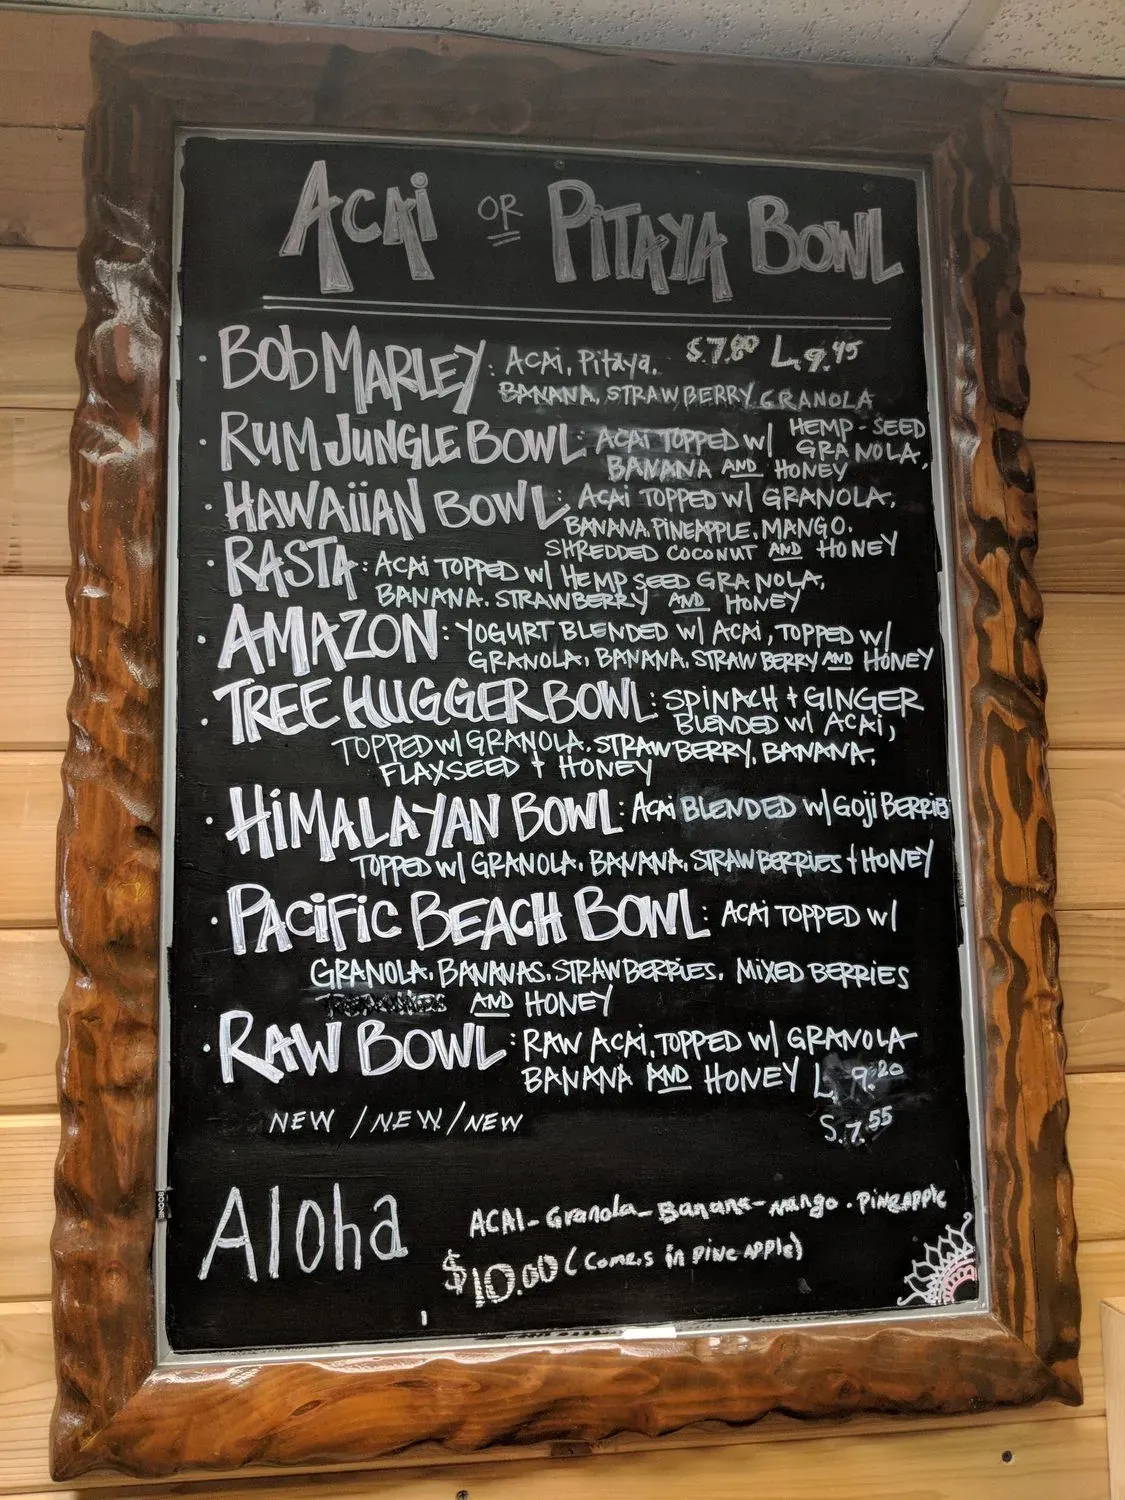 ACAi OR PiTAYA BOWL
· BOB MARLEY : ACAi, Pitaya. $7.80 L. 9.45
BANANA, STRAWBERRY GRANOLA
· RUM JUNGLE BOWL: ACAi TOPPED W/ HEMP-SEED GRANOLA,
BANANA AND HONEY
· HAWAiiAN BOWL: ACAi TOPPED W/ GRANOLA,
BANANA, PINEAPPLE, MANGO,
SHREDDED COCONUT AND HONEY
· RASTA: ACAi TOPPED W/ HEMP SEED GRANOLA,
BANANA, STRAWBERRY AND HONEY
· AMAZON: YOGURT BLENDED W/ ACAi, TOPPED W/
GRANOLA, BANANA, STRAWBERRY AND HONEY
· TREE HUGGER BOWL: SPINACH + GINGER
BLENDED W/ ACAi,
TOPPED W/ GRANOLA, STRAWBERRY, BANANA,
FLAXSEED + HONEY
· HiMALAYAN BOWL: ACAi BLENDED W/ GOji BERRiES
TOPPED W/ GRANOLA, BANANA, STRAWBERRiES + HONEY
· PACiFiC BEACH BOWL: ACAi TOPPED W/
GRANOLA, BANANAS, STRAWBERRiES, MiXED BERRIES
AND HONEY
· RAW BOWL: RAW ACAi, TOPPED W/ GRANOLA
BANANA AND HONEY L. 9.20
NEW / NEW / NEW S. 7.55
Aloha ACAI - Granola - Banana - Mango . PINEAPPle
$10.00 (Comes in pineapple)